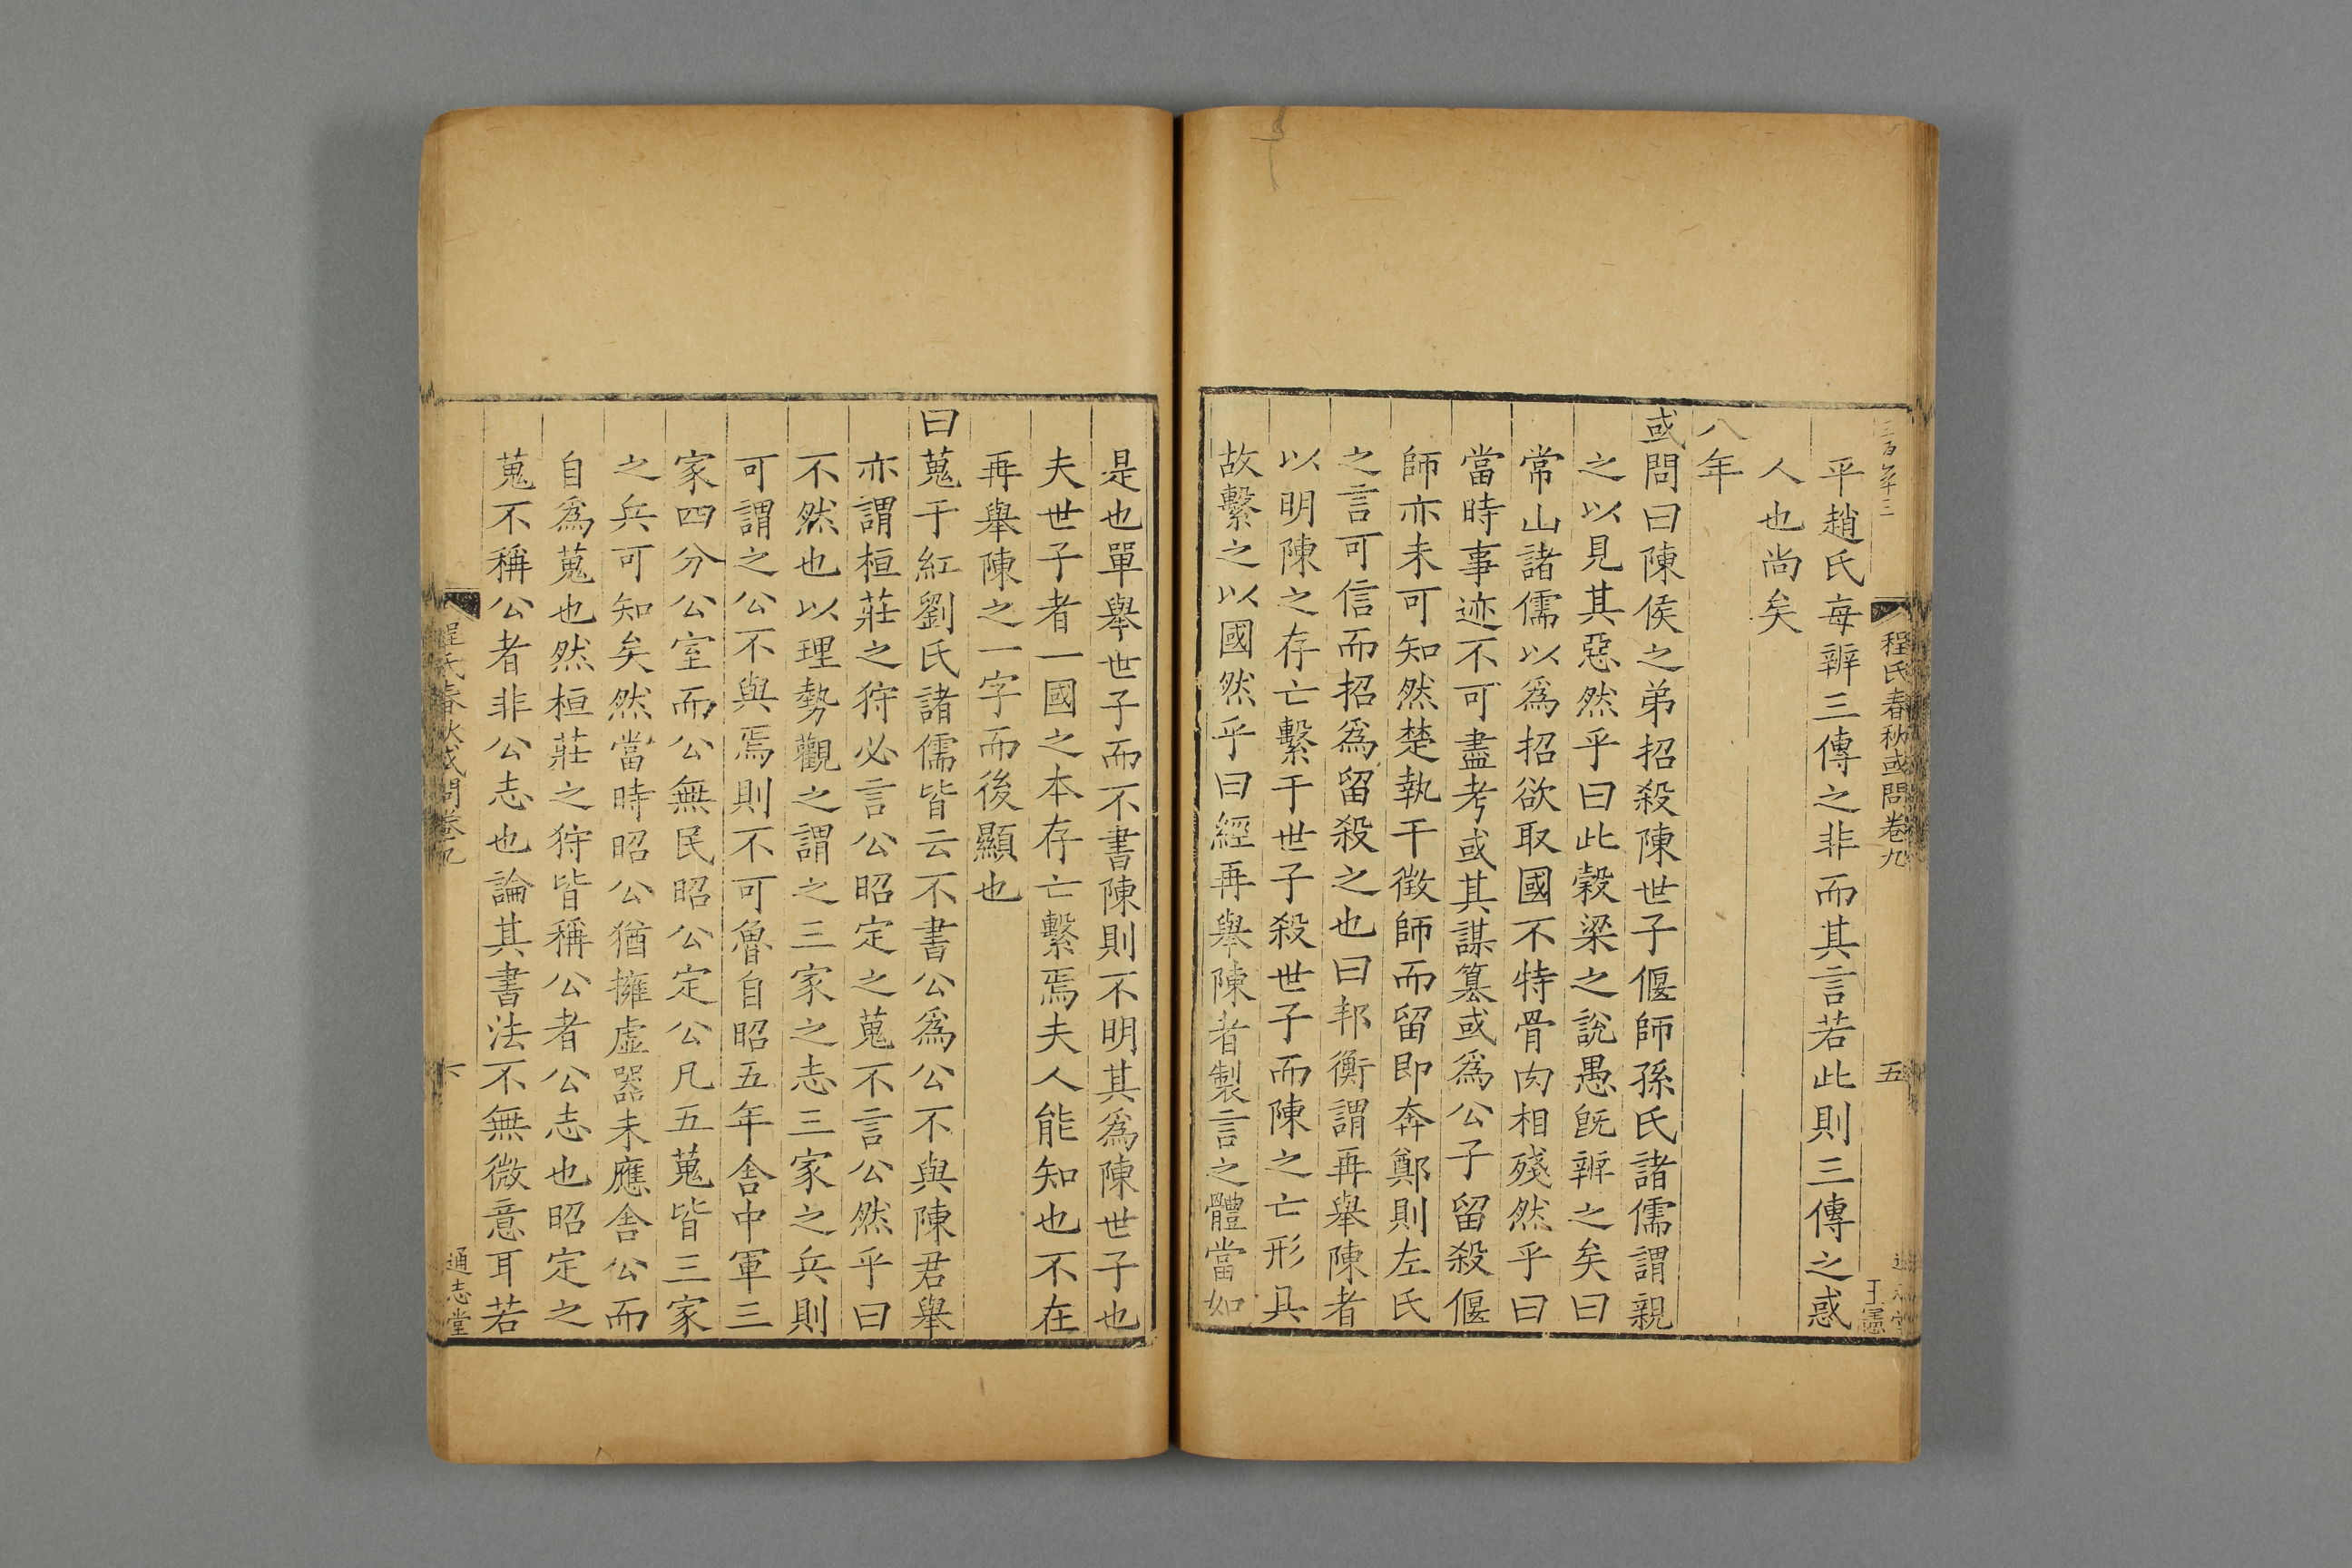 程氏春秋或問卷九
五
王憲
平趙氏每辨三傳之非而其言若此則三傳之惑
人也尚矣
八年
或問曰陳侯之弟招殺陳世子偃師孫氏諸儒謂親
之以見其惡然乎曰此穀梁之說愚旣辨之矣曰
常山諸儒以爲招欲取國不特骨肉相殘然乎曰
當時事迹不可盡考或其謀簒或爲公子留殺偃
師亦未可知然楚執干徵師而留即奔鄭則左氏
之言可信而招爲留殺之也曰邦衡謂再舉陳者
以明陳之存亡繫于世子殺世子而陳之亡形具
故繫之以國然乎曰經再舉陳者製言之體當如
是也單舉世子而不書陳則不明其爲陳世子也
夫世子者一國之本存亡繫焉夫人能知也不在
再舉陳之一字而後顯也
曰蒐于紅劉氏諸儒皆云不書公爲公不與陳君舉
亦謂桓莊之狩必言公昭定之蒐不言公然乎曰
不然也以理勢觀之謂之三家之志三家之兵則
可謂之公不與焉則不可魯自昭五年舍中軍三
家四分公室而公無民昭公定公凡五蒐皆三家
之兵可知矣然當時昭公猶擁虛器未應舍公而
自爲蒐也然桓莊之狩皆稱公者公志也昭定之
蒐不稱公者非公志也論其書法不無微意耳若
程氏春秋或問卷九
六
通志堂